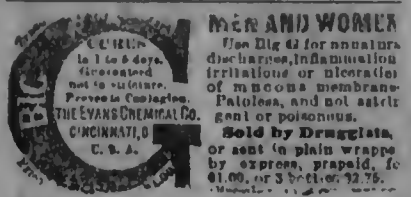 BIG
CURES
in 1 to 5 days.
Guaranteed
not to stricture.
Prevents Contagion.
THE EVANS CHEMICAL CO.
CINCINNATI, O
U. S. A.
MEN AND WOMEN
Use Big G for unnatura
discharges, inflammation
irritations or ulceration
of mucous membrane
Painless, and not astrin
gent or poisonous.
Sold by Druggists,
or sent in plain wrappe
by express, prepaid, fo
$1.00, or 3 bottles $2.75.